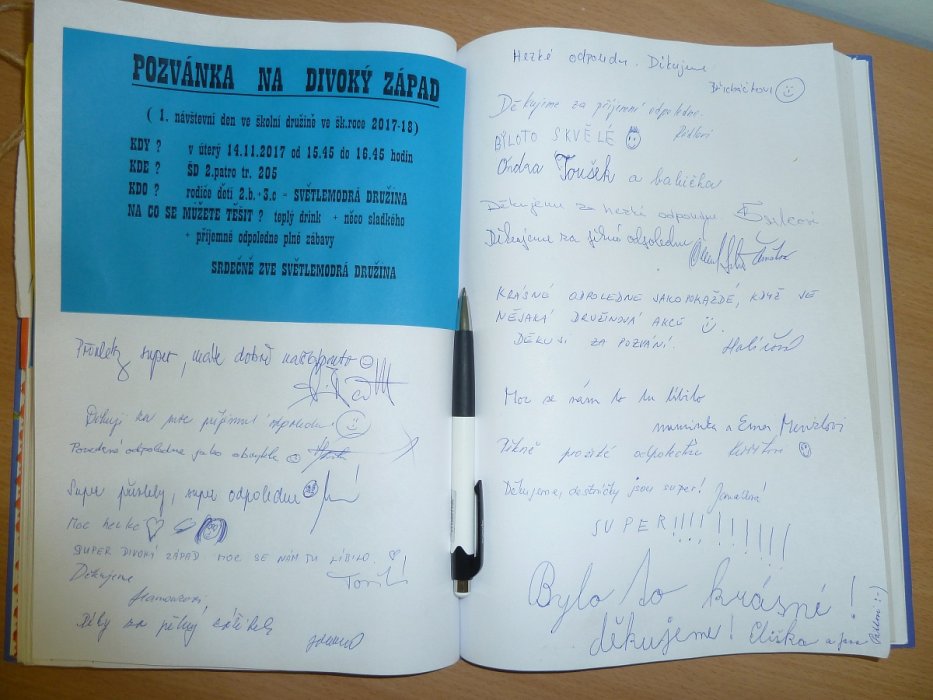 POZVÁNKA NA DIVOKÝ ZÁPAD
( 1. návštevní den ve školní družině ve šk.roce 2017-18)
KDY ? v úterý 14.11.2017 od 15.45 do 16.45 hodin
KDE ? ŠD 2.patro tr. 205
KDO ? rodiče dětí 2.b.+3.c - SVĚTLEMODRÁ DRUŽINA
NA CO SE MŮŽETE TĚŠIT ? teplý drink + něco sladkého
+ příjemné odpoledne plné zábavy
SRDEČNĚ ZVE SVĚTLEMODRÁ DRUŽINA
super, máte dobře
Děkuji za moc příjemné odpoledne!
Povedené odpoledne jako obvykle
Super přístřelky, super odpoledne
Moc hezké
SUPER DIVOKÝ ZÁPAD MOC SE NÁM TU LÍBILO.
Děkujeme
Díky za pěkný zážitek
Hezké odpoledne. Děkujeme
Děkujeme za příjemné odpoledne.
BYLOTO SKVĚLÉ
Ondra Toušek a babička
Děkujeme za hezké odpoledne
Děkujeme za odpoledne
KRÁSNÉ ODPOLEDNE JAKO POKAŽDÉ, KDYŽ JE
NĚJAKÁ DRUŽINOVÁ AKCE
DĚKUJI ZA POZVÁNÍ.
Moc se nám to tu líbilo
maminka a Ema
Pěkně prožité odpoledne
Děkujeme, destičky jsou super!
SUPER!!!!!!!!!!
Bylo to krásné!
děkujeme! Eliška a